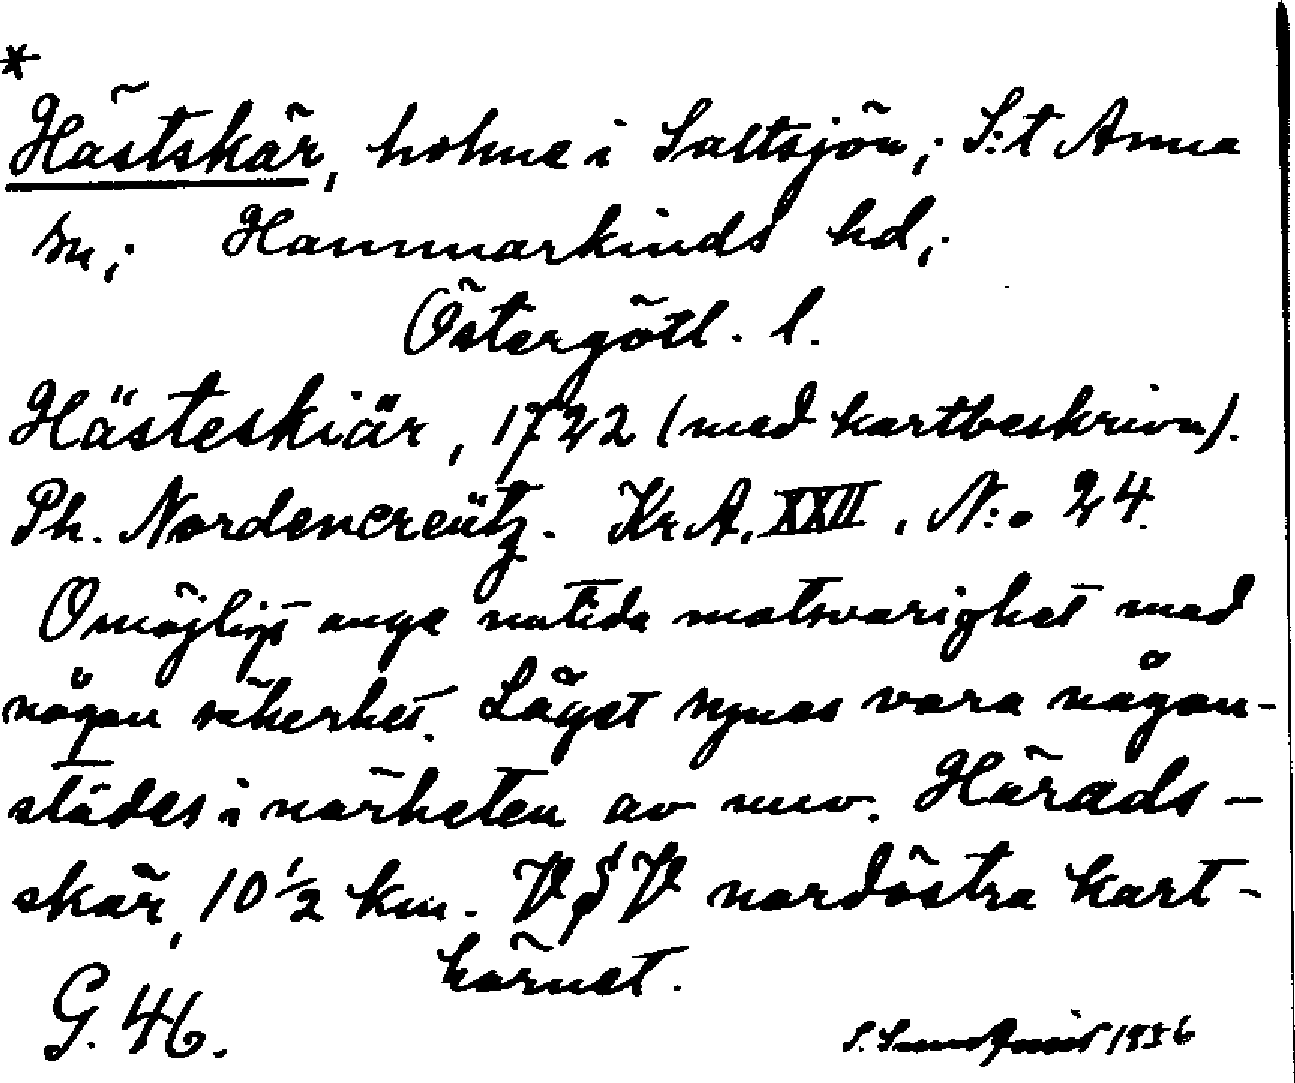 *
Hästskär, holme i Saltsjön; S:t Anna
sn; Hammarkinds hd;
Östergötl. l.
Hästeskiär, 1722 (med kartbeskrivn).
Ph. Nordencreütz. Kr. A. XXII. N:o 24.
Omöjligt ange nutida motsvarighet med
någon säkerhet. Läget synes vara någon-
städes i närheten av nuv. Härads-
skär, 10 1/2 km. VSV nordöstra kart-
hörnet.
G. 46.
S. Sundqvist 1936